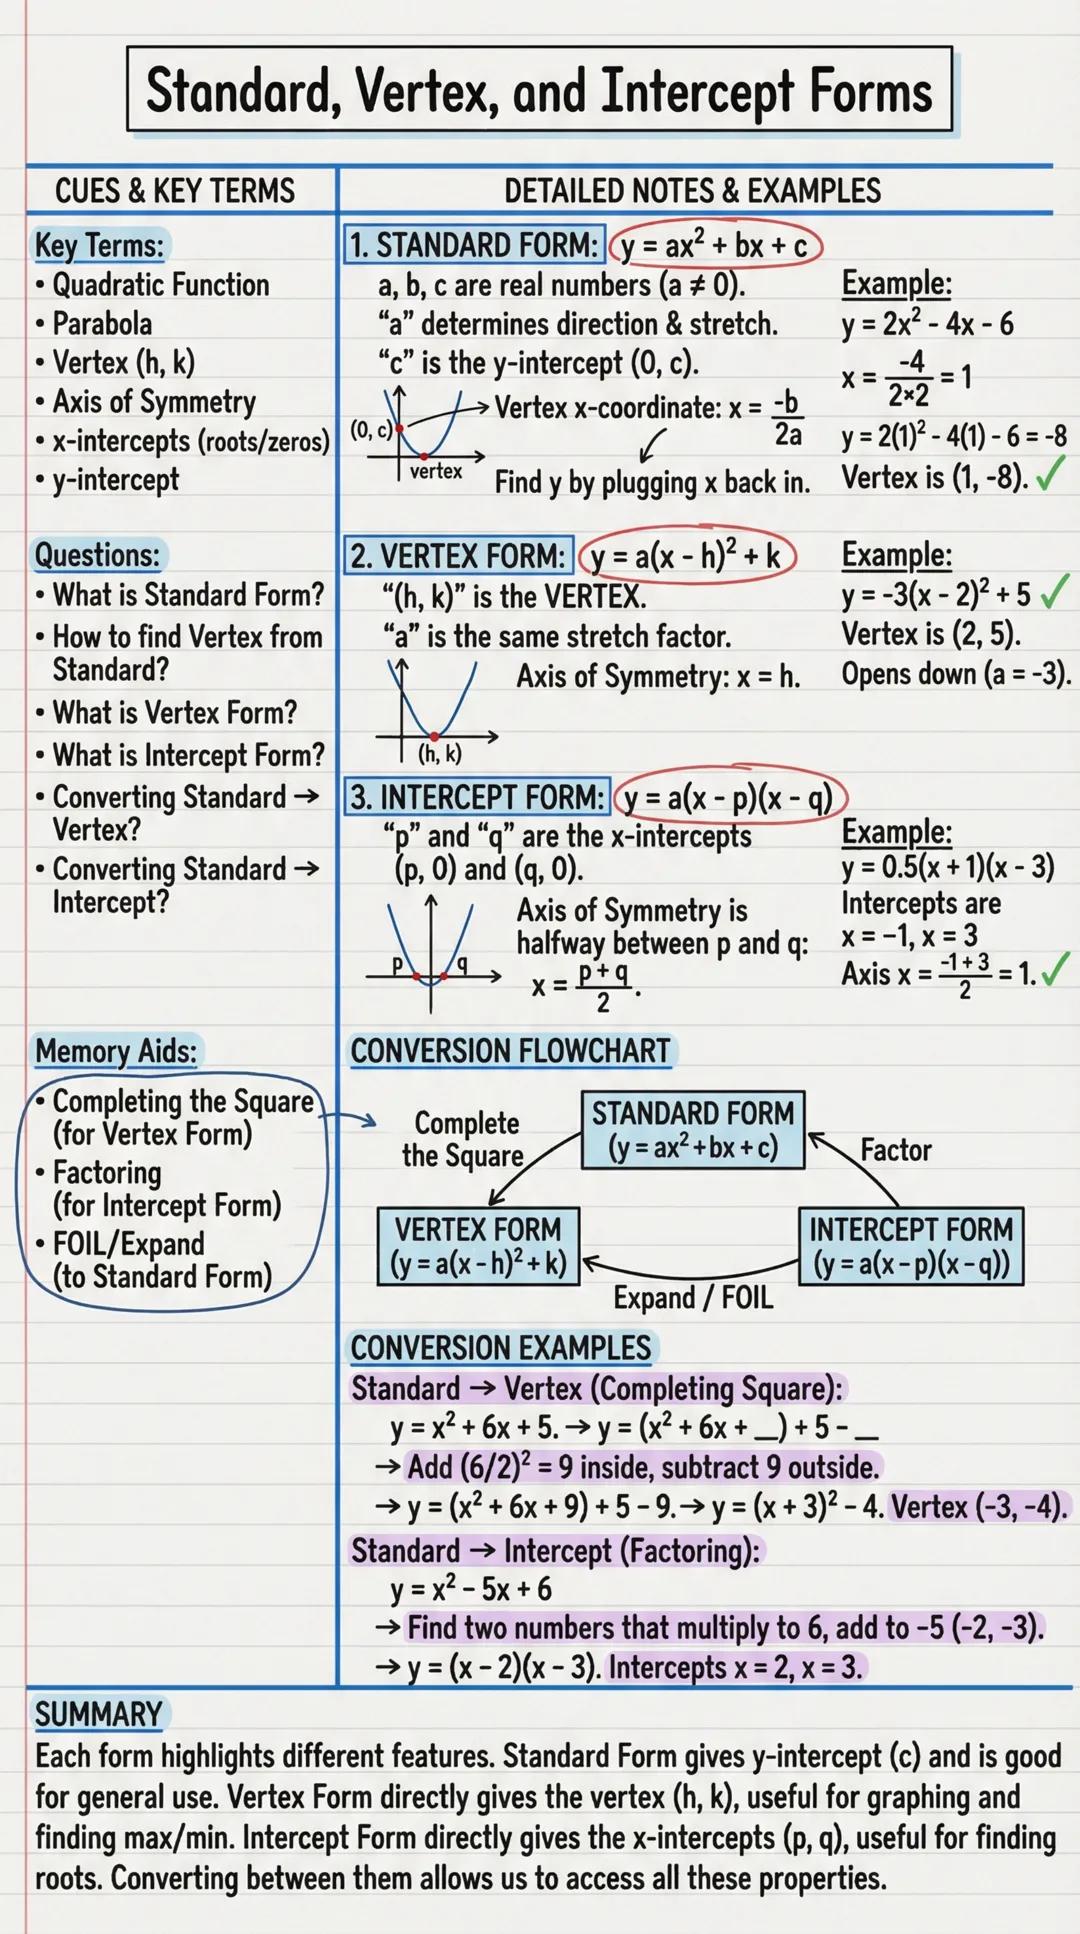 Standard, Vertex, and Intercept Forms
CUES & KEY TERMS
Key Terms:
• Quadratic Function
• Parabola
• Vertex (h, k)
• Axis of Symmetry
• x-intercepts (roots/zeros)
• y-intercept
Questions:
• What is Standard Form?
• How to find Vertex from
Standard?
• What is Vertex Form?
• What is Intercept Form?
• Converting Standard →
Vertex?
• Converting Standard →
Intercept?
Memory Aids:
• Completing the Square
(for Vertex Form)
• Factoring
(for Intercept Form)
• FOIL/Expand
(to Standard Form)
DETAILED NOTES & EXAMPLES
1. STANDARD FORM: y = ax² + bx + c
a, b, c are real numbers (a ≠ 0).
“a” determines direction & stretch.
“c” is the y-intercept (0, c).
(0, c)
vertex
Vertex x-coordinate: x = -b/2a
Find y by plugging x back in.
Example:
y = 2x² - 4x - 6
x = -4/2×2 = 1
y = 2(1)² - 4(1) - 6 = -8
Vertex is (1, -8). ✓
2. VERTEX FORM: y = a(x - h)² + k
“(h, k)” is the VERTEX.
“a” is the same stretch factor.
Axis of Symmetry: x = h.
(h, k)
Example:
y = -3(x - 2)² + 5 ✓
Vertex is (2, 5).
Opens down (a = -3).
3. INTERCEPT FORM: y = a(x - p)(x - q)
“p” and “q” are the x-intercepts
(p, 0) and (q, 0).
p q
Axis of Symmetry is
halfway between p and q:
x = p + q/2.
Example:
y = 0.5(x + 1)(x - 3)
Intercepts are
x = -1, x = 3
Axis x = -1 + 3/2 = 1. ✓
CONVERSION FLOWCHART
Complete
the Square
STANDARD FORM
(y = ax² + bx + c)
Factor
VERTEX FORM
(y = a(x - h)² + k)
INTERCEPT FORM
(y = a(x - p)(x - q))
Expand / FOIL
CONVERSION EXAMPLES
Standard → Vertex (Completing Square):
y = x² + 6x + 5. → y = (x² + 6x + __) + 5 - __
→ Add (6/2)² = 9 inside, subtract 9 outside.
→ y = (x² + 6x + 9) + 5 - 9. → y = (x + 3)² - 4. Vertex (-3, -4).
Standard → Intercept (Factoring):
y = x² - 5x + 6
→ Find two numbers that multiply to 6, add to -5 (-2, -3).
→ y = (x - 2)(x - 3). Intercepts x = 2, x = 3.
SUMMARY
Each form highlights different features. Standard Form gives y-intercept (c) and is good
for general use. Vertex Form directly gives the vertex (h, k), useful for graphing and
finding max/min. Intercept Form directly gives the x-intercepts (p, q), useful for finding
roots. Converting between them allows us to access all these properties.